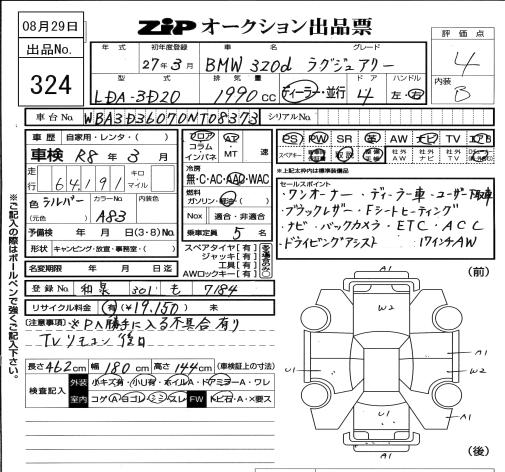 08月29日
ZiP オークション出品票
出品No.
324
年式 初年度登録 車名 グレード
27年3月 BMW 320d ラグジュアリー
型式 排気量 ドア ハンドル
LDA-3D20 1990cc ディーラー・並行 4 左・右
評価点
4
内装
B
車台No. WBA3D36070NT08373 シリアルNo.
車歴 自家用・レンタ・( )
車検 R8年3月
走行 64,191 キロ マイル
色 シルバー カラーNo. A83 内装色
(元色)
予備検 年 月 日(3・8)No.
形状 キャンピング・放室・事務室・( )
名変期限 年 月 日迄
フロア コラム インパネ
AT・MT 速
冷房
無・C・AC・AAC・WAC
燃料
ガソリン・軽油・( )
Nox 適合・非適合
乗車定員 5名
スペアタイヤ[有]
ジャッキ[有]
工具[有]
AWロックキー[有]
PS PW SR 革 AW ナビ TV エアB
スペアキー 取説 社外AW 社外ナビ 社外TV
※上記太枠内は標準装備品
セールスポイント
・ワンオーナー ・ディーラー車 ・ユーザー買取車
・ブラックレザー ・Fシートヒーティング
・ナビ ・バックカメラ ・ETC ・ACC
・ドライビングアシスト ・17インチAW
登録No. 和泉 301 も 7184
リサイクル料金 (有)(¥19,150) 未
(注意事項) ※PA勝手に入る不具合有り
TVリモコン後日
長さ462cm 幅180cm 高さ144cm (車検証上の寸法)
検査記入 外装 小キズ有・小U有・ホイルA・ドアミラーA・ワレ
室内 コゲA・ヨゴレ・シミ・スレ FW トビ石・A・×要ス
※ご記入の際はボールペンで強くご記入下さい。
(前)
W2
A1
U1
A1
W2
U1
A1
(後)